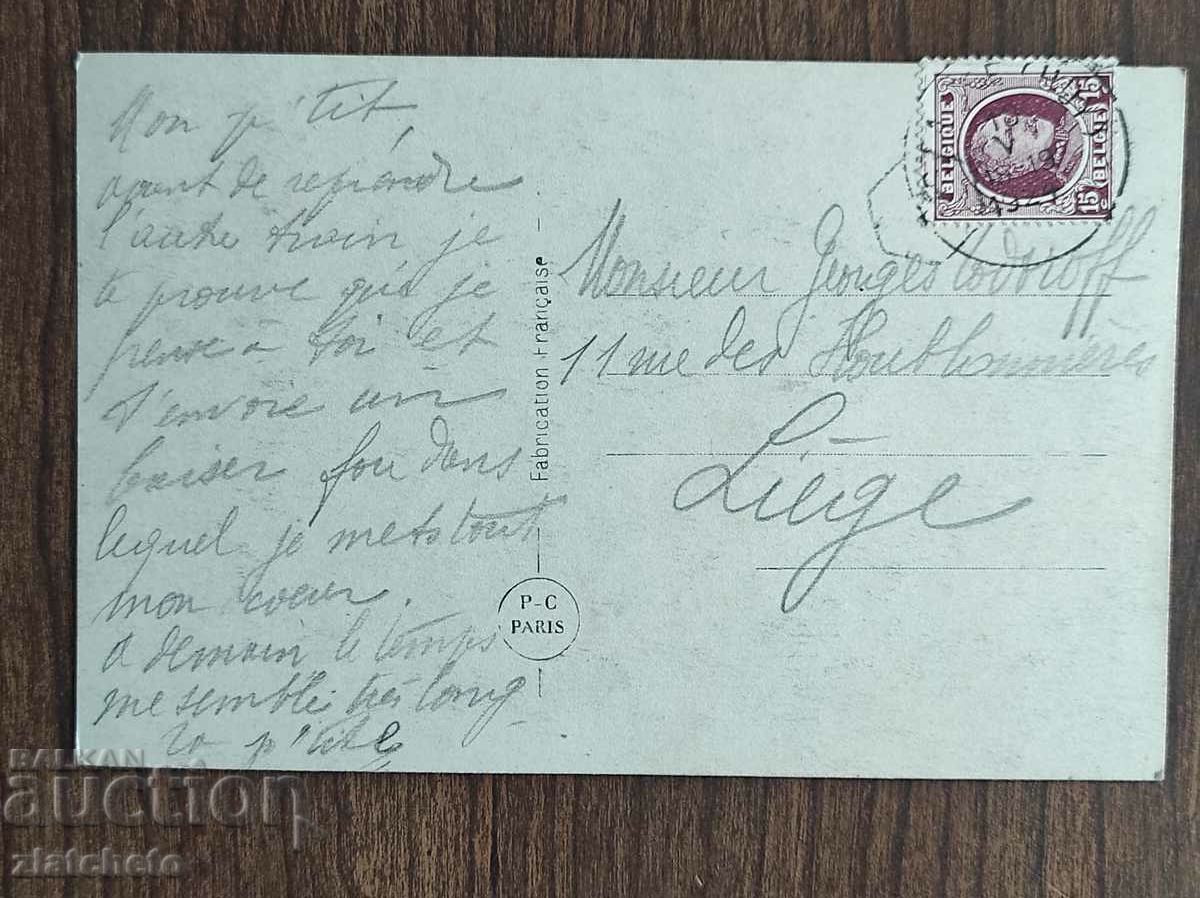 Mon p'tit
avant de reprendre
l'autre train je
te prouve que je
pense à toi et
t'envoie un
baiser fou dans
lequel je mets tout
mon coeur.
a demain le temps
me semble très long
ta p'tite
Fabrication Française
P-C
PARIS
BELGIQUE
BELGIE
15 c
15
Monsieur Georges
11 rue des Houblonnières
Liège
BALKAN
auction
zlatcheto